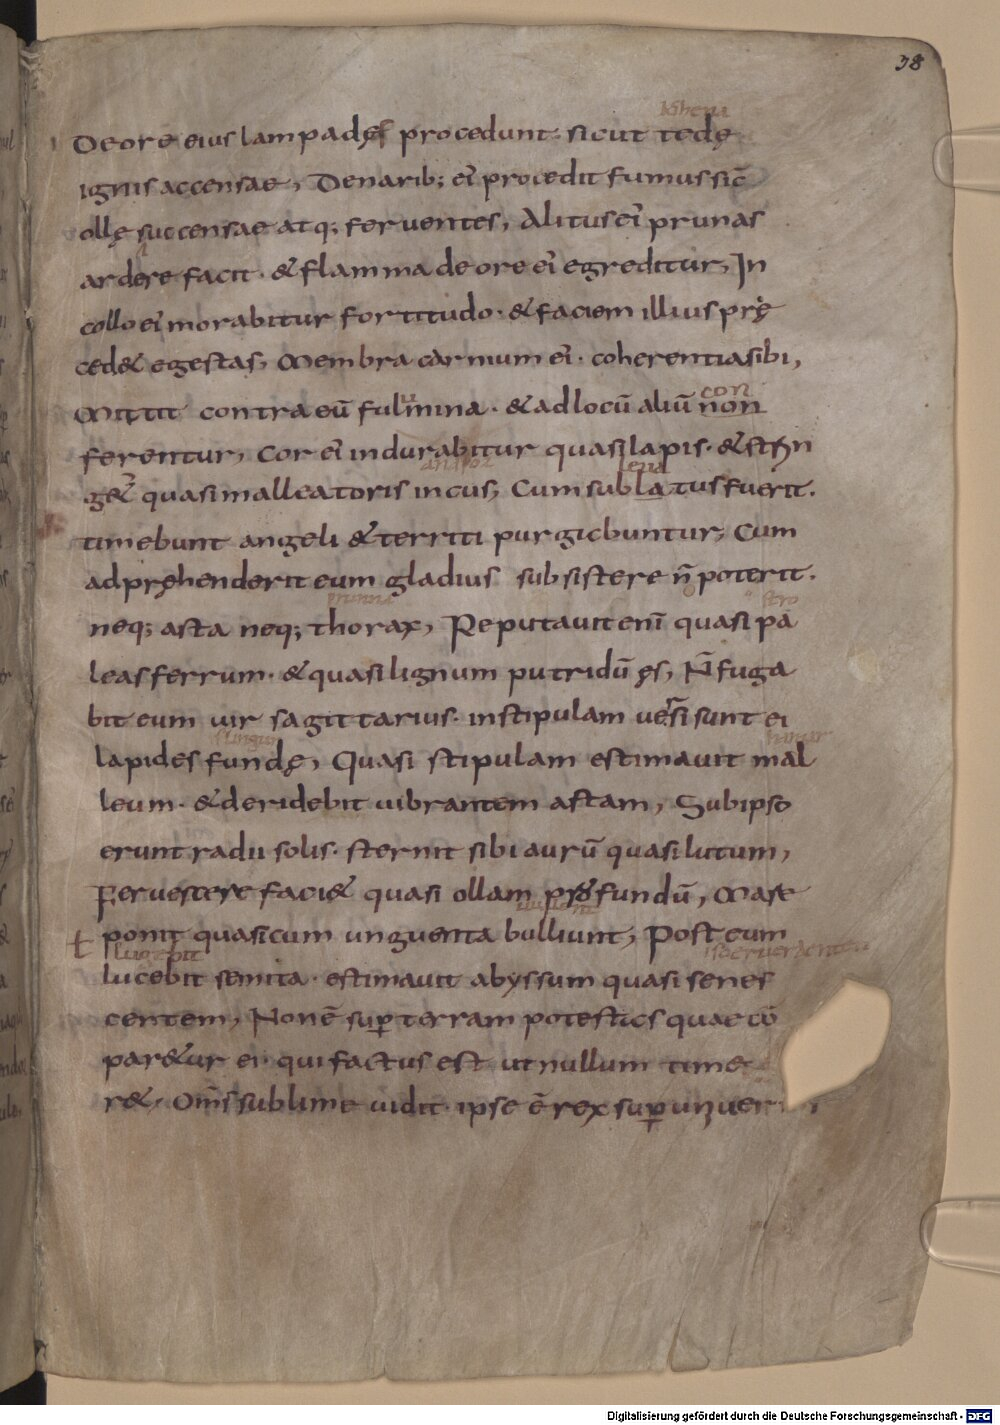 38
kihena
De ore eius lampadęs procedunt· sicut tedę
ignis accensae, De narib; ei' procedit fumus sic̄
ollę succensae atq; feruentes, Alitus ei' prunas
ardere facit· & flamma de ore ei' egreditur, In
collo ei' morabitur fortitudo· & faciem illius prę
ced& egestas, Membra carnium ei'· coherentia sibi,
u con
Mittit contra eū fulmina· & ad locū aliū non
ferentur, Cor ei' indurabitur quasi lapis· & strin
g&' quasi malleatoris incus, Cum sublatus fuerit.
timebunt angeli & territi purgicbuntur, Cum
adpręhenderit eum gladius subsistere n̄ poterit.
prunna
neq; asta neq; thorax, Reputauit enī quasi pa
leas ferrum· & quasi lignum putridū ęs, N̄ fuga
bit eum uir sagittarius· in stipulam uersi sunt ei
slingun
lapides fundę, Quasi stipulam estimauit mal
leum· & deridebit uibrantem astam, Sub ipso
erunt radii solis· sternit sibi aurū quasi lutum,
Feruescere faci& quasi ollam profundū, Mare
ponit quasi cum unguenta bulliunt, Post eum
lucebit semita· estimauit abyssum quasi senes
centem, Non ē sup terram potestas quae cō
par&ur ei· qui factus est ut nullum time
r&· Om̄s sublime uidit· ipse ē rex sup
Digitalisierung gefördert durch die Deutsche Forschungsgemeinschaft - DFG